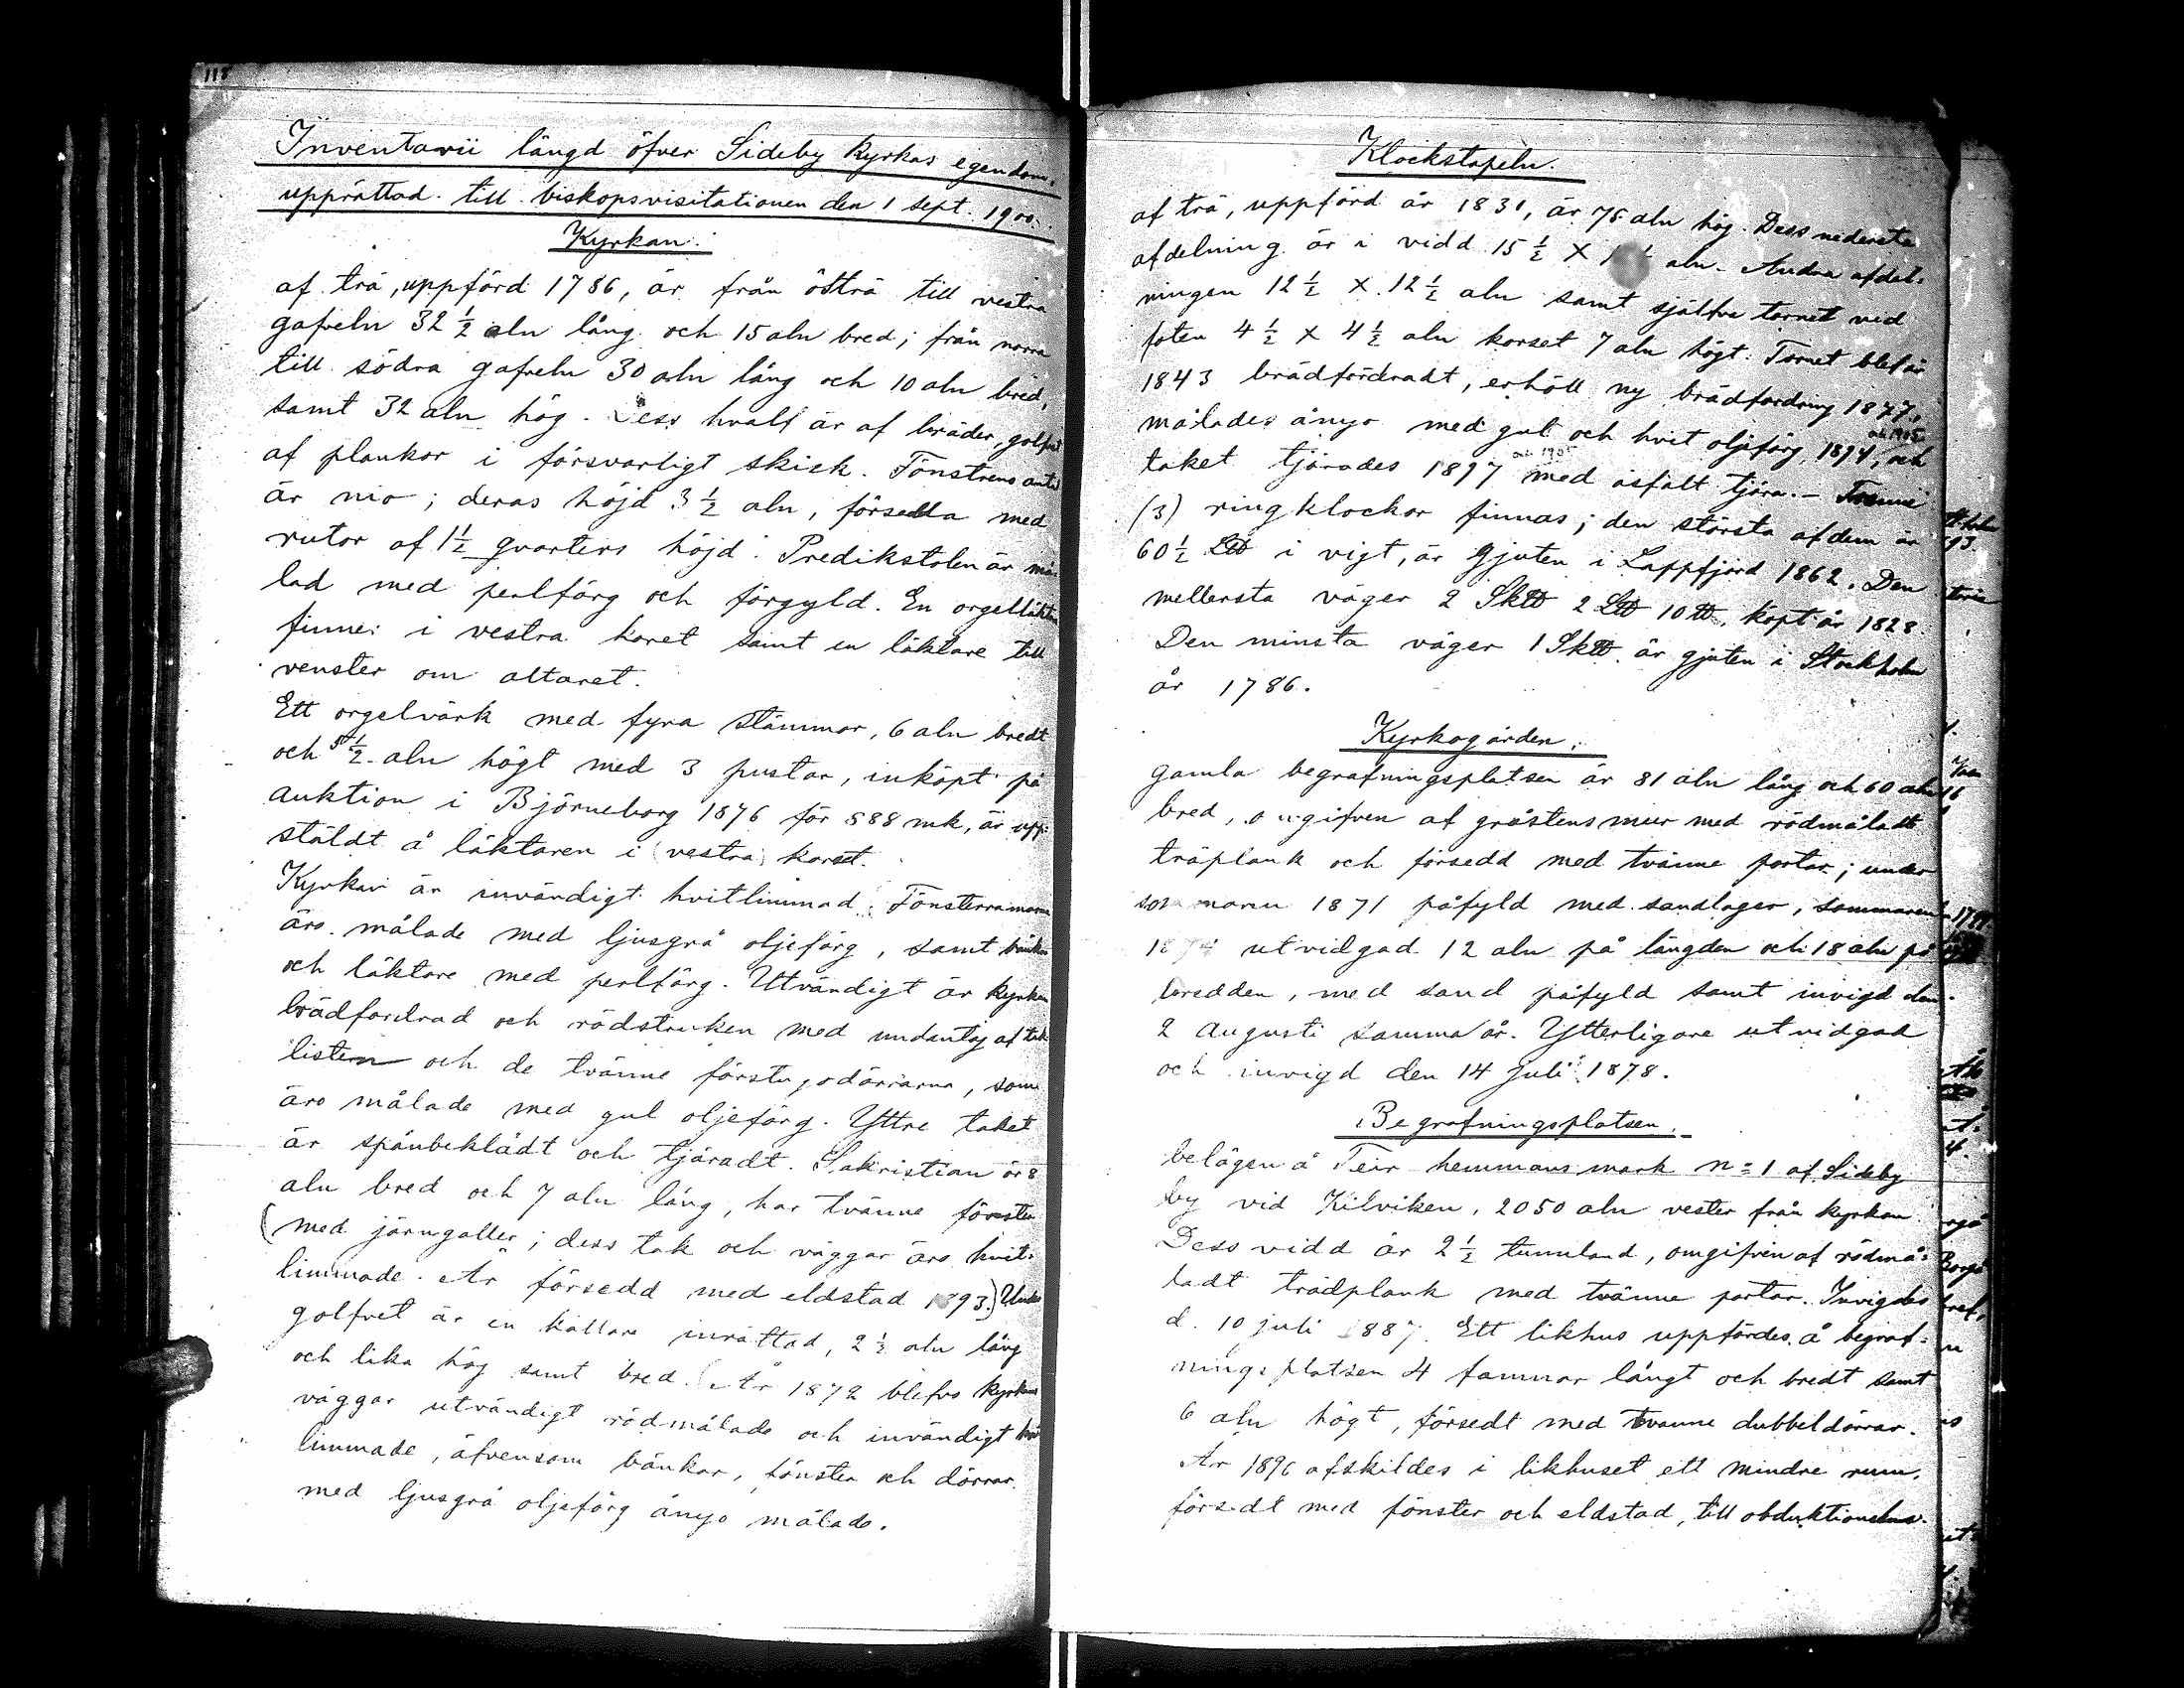 118
Inventarii längd öfver Sideby Kyrkas egendom,
upprättad till biskopsvisitationen den 1 sept. 1900.
Kyrkan.
af trä, uppförd 1786, är från östra till vestra
gafveln 32 ½ aln lång och 15 aln bred; från norra
till södra gafveln 30 aln lång och 10 aln bred,
samt 32 aln hög. Dess hvalf är af bräder, golfvet
af plankor i försvarligt skick. Fönstrens antal
är nio; deras höjd 3 ½ aln, försedda med
rutor af 1½ qvarters höjd. Predikstolen är må-
lad med perlfärg och förgyld. En orgelläktare
finnes i vestra koret samt en läktare till
venster om altaret.
Ett orgelvärk med fyra stämmor, 6 aln bredt
och 5 ½ aln högt med 3 pustar, inköpt på
auktion i Björneborg 1876 för 588 mk, är upp-
stäldt å läktaren i vestra korset.
Kyrkan är invändigt hvitlimmad. Fönsterramarna
äro målade med ljusgrå oljefärg, samt bänkar
och läktare med perlfärg. Utvändigt är kyrkan
brädfordrad och rödstruken med undantag af tak-
listen och de tvänne förstugodörrarna, som
äro målade med gul oljefärg. Yttre taket
är spånbeklädt och tjäradt. Sakristian är 8
aln bred och 7 aln lång, har tvänne fönster
(med järngaller; dess tak och väggar äro hvit-
limmade. Är försedd med eldstad 1893.) Under
golfvet är en källare inrättad, 2 ½ aln lång
och lika hög samt bred. (År 1872 blefvo kyrkans
väggar utvändigt rödmålade och invändigt hvit-
limmade, äfvensom bänkar, fönster och dörrar
med ljusgrå oljefärg ånyo målade.
Klockstapeln.
af trä, uppförd år 1831, är 75 aln hög. Dess nedersta
afdelning är i vidd 15 ½ X aln. Andra afdel-
ningen 12 ½ X 12 ½ aln samt själfva tornet ved
foten 4 ½ X 4 ½ aln korset 7 aln högt. Tornet blef år
1843 brädfordradt, erhöll ny brädfordring 1877,
målades ånyo med gul och hvit oljefärg 1894, och 1905 och
taket tjärades 1897 och 1905 med asfalt tjära. – Tvenne
(3) ringklockor finnas; den största af dem är
60 ½ L℔ i vigt, är gjuten i Lappfjärd 1862. Den
mellersta väger 2 Sk℔ 2 L℔ 10 ℔, köpt år 1828.
Den minsta väger 1 Sk℔ är gjuten i Stockholm
år 1786.
Kyrkogården.
Gamla begrafningsplatsen är 81 aln lång och 60 aln
bred, omgifven af gråstensmur med rödmåladt
träplank och försedd med tvänne portar; under
sommaren 1871 påfyld med sandlager, sommaren
1874 utvidgad 12 aln på längden och 18 aln på
bredden, med sand påfyld samt invigd den
2 augusti samma år. Ytterligare utvidgad
och invigd den 14 juli 1878.
Begrafningsplatsen.
belägen å Teir hemmans mark n=1 af Sideby
by vid Kilviken, 2050 aln vester från kyrkan.
Dess vidd är 2 ½ tunnland, omgifven af rödmå-
ladt trädplank med tvänne portar. Invigdes
d. 10 juli 1887. Ett likhus uppfördes å begraf-
ningsplatsen 4 famnar långt och bredt samt
6 aln högt, försedt med tvänne dubbeldörrar.
År 1896 afskildes i likhuset ett mindre rum,
försedt med fönster och eldstad, till obduktionshus.